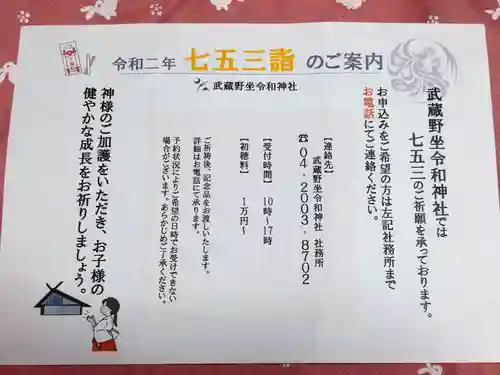 令和二年 七五三詣 のご案内
武蔵野坐令和神社
武蔵野坐令和神社では
七五三のご祈願を承っております。
お申込みをご希望の方は左記社務所まで
お電話にてご連絡ください。
【連絡先】
武蔵野坐令和神社 社務所
☎04-2003-8702
【受付時間】 10時〜17時
【初穂料】 1万円〜
ご祈祷後、記念品をお渡しいたします。
詳細はお電話にて承ります。
予約状況によりご希望の日時でお受けできない
場合がございます。あらかじめご了承ください。
神様のご加護をいただき、お子様の
健やかな成長をお祈りしましょう。